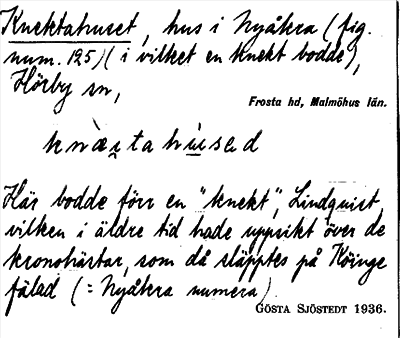 Knektahuset, hus i Nyåkra (fig.
num. 125) (i vilket en knekt bodde),
Hörby sn,
Frosta hd, Malmöhus län.
knæi̯tahu̇sed
Här bodde förr en "knekt", Lindquist,
vilken i äldre tid hade uppsikt över de
kronohästar, som då släpptes på Köinge
fälad (= Nyåkra numera)
GÖSTA SJÖSTEDT 1936.